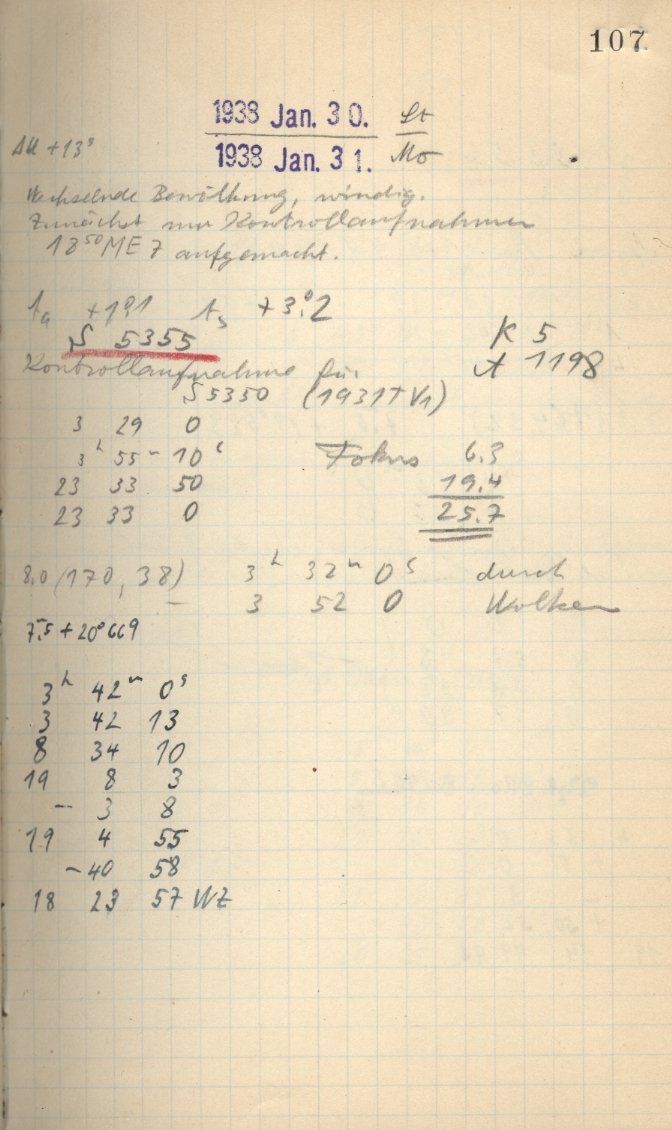 107
1938 Jan. 30. St
1938 Jan. 31. Mo
ΔU +13ˢ
Wechselnde Bewölkung, windig.
Zunächst nur Kontrollaufnahmen
18⁵⁰ MEZ aufgemacht.
tₐ +1°,1 tₛ +3°,2
S 5355 K 5
Kontrollaufnahme für A 1198
S 5350 (1931 + V1)
3 29 0
3ʰ 55ᵐ 10ˢ Fokus 6.3
23 33 50 19.4
23 33 0 25.7
8.0 (170, 38) 3ʰ 32ᵐ 0ˢ durch
– 3 52 0 Wolken
7.5 + 20°669
3ʰ 42ᵐ 0ˢ
3 42 13
8 34 10
19 8 3
– 3 8
19 4 55
– 40 58
18 23 57 WZ